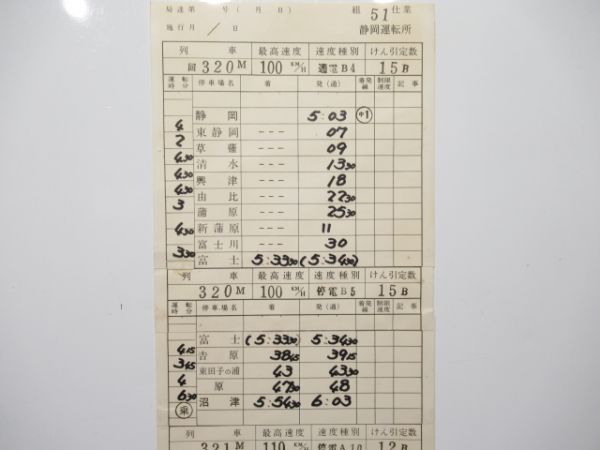 局達第 号(月 日) 組 51 仕業
施行月 / 日 静岡運転所
列車 最高速度 速度種別 けん引定数
回 320M 100 KM/H 通電B4 15B
運転時分 停車場名 着 発(通) 着発線 制限速度 記事
静岡 5:03 中1
4
東静岡 --- 07
2
草薙 --- 09
4 30
清水 --- 13 30
4 30
興津 --- 18
4 30
由比 --- 22 30
3
蒲原 --- 25 30
新蒲原 --- 11
4 30
富士川 --- 30
3 30
富士 5:33 30 (5:34 30)
列車 最高速度 速度種別 けん引定数
320M 100 KM/H 停電B5 15B
運転時分 停車場名 着 発(通) 着発線 制限速度 記事
富士 (5:33 30) 5:34 30
4 15
吉原 38 45 39 15
3 45
東田子の浦 43 43 30
4
原 47 30 48
6 30
沼津 5:54 30 6:03
乗
列車 最高速度 速度種別 けん引定数
321M 110 KM/H 停電A10 12B